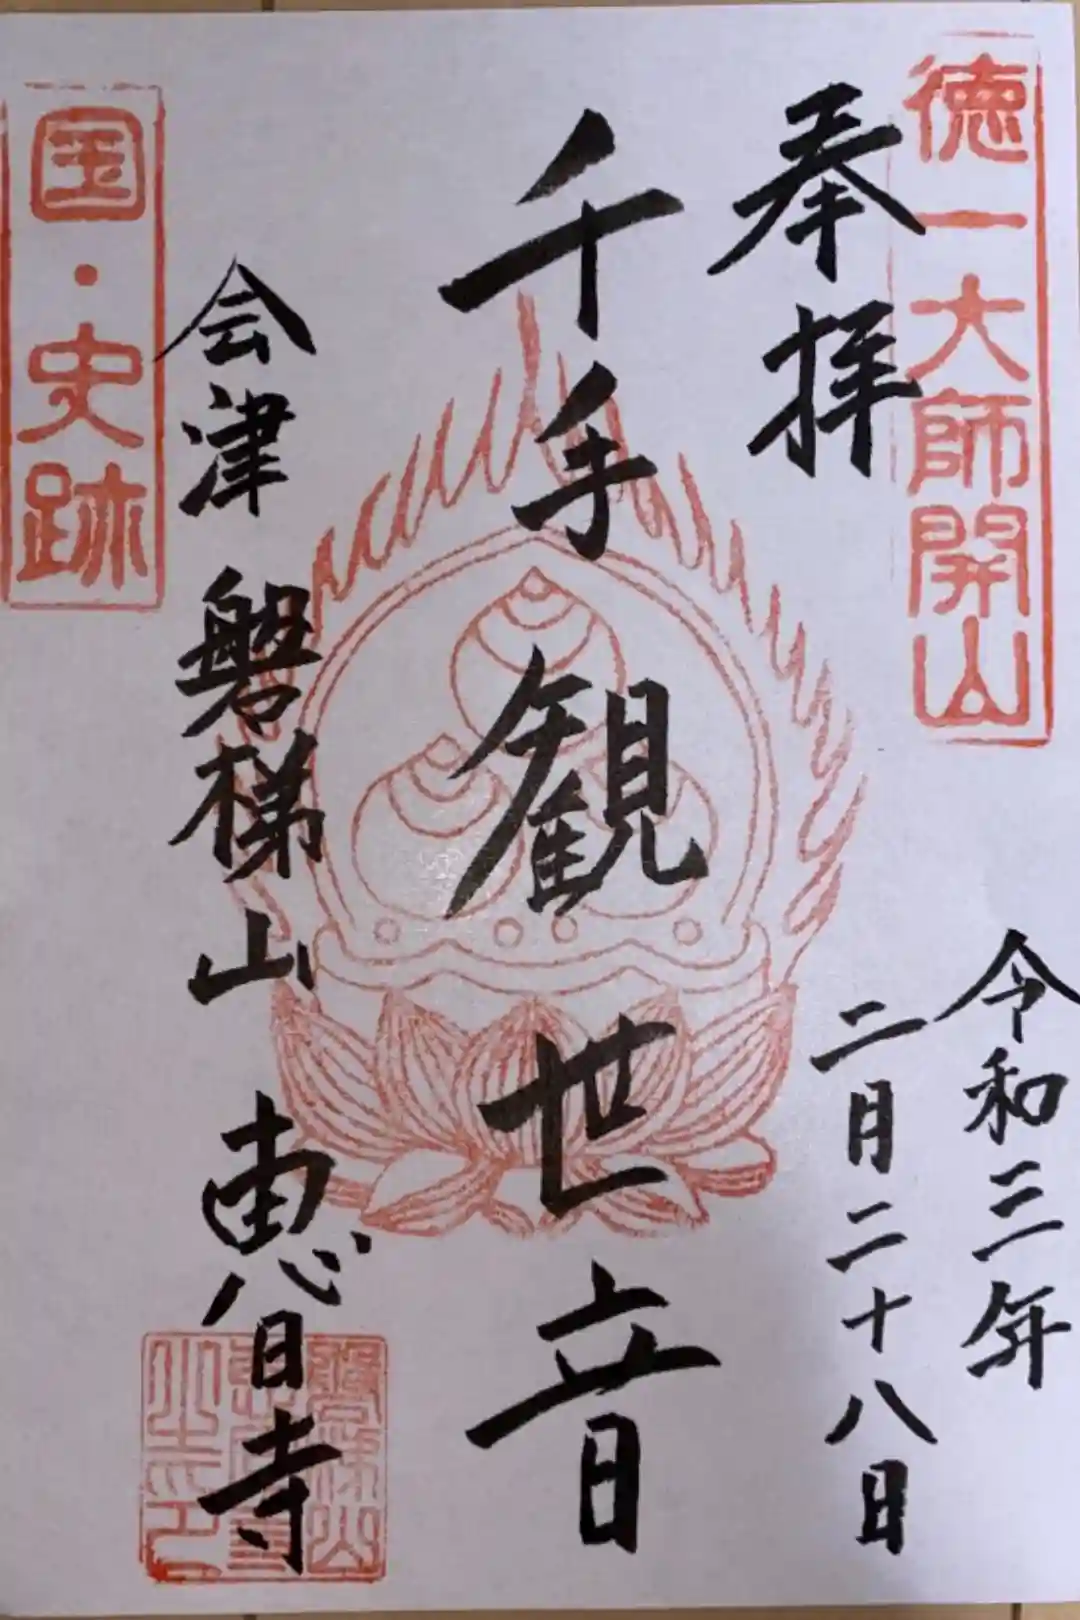 徳一大師開山
奉拝
令和三年
二月二十八日
千手観世音
会津 磐梯山 恵日寺
国・史跡